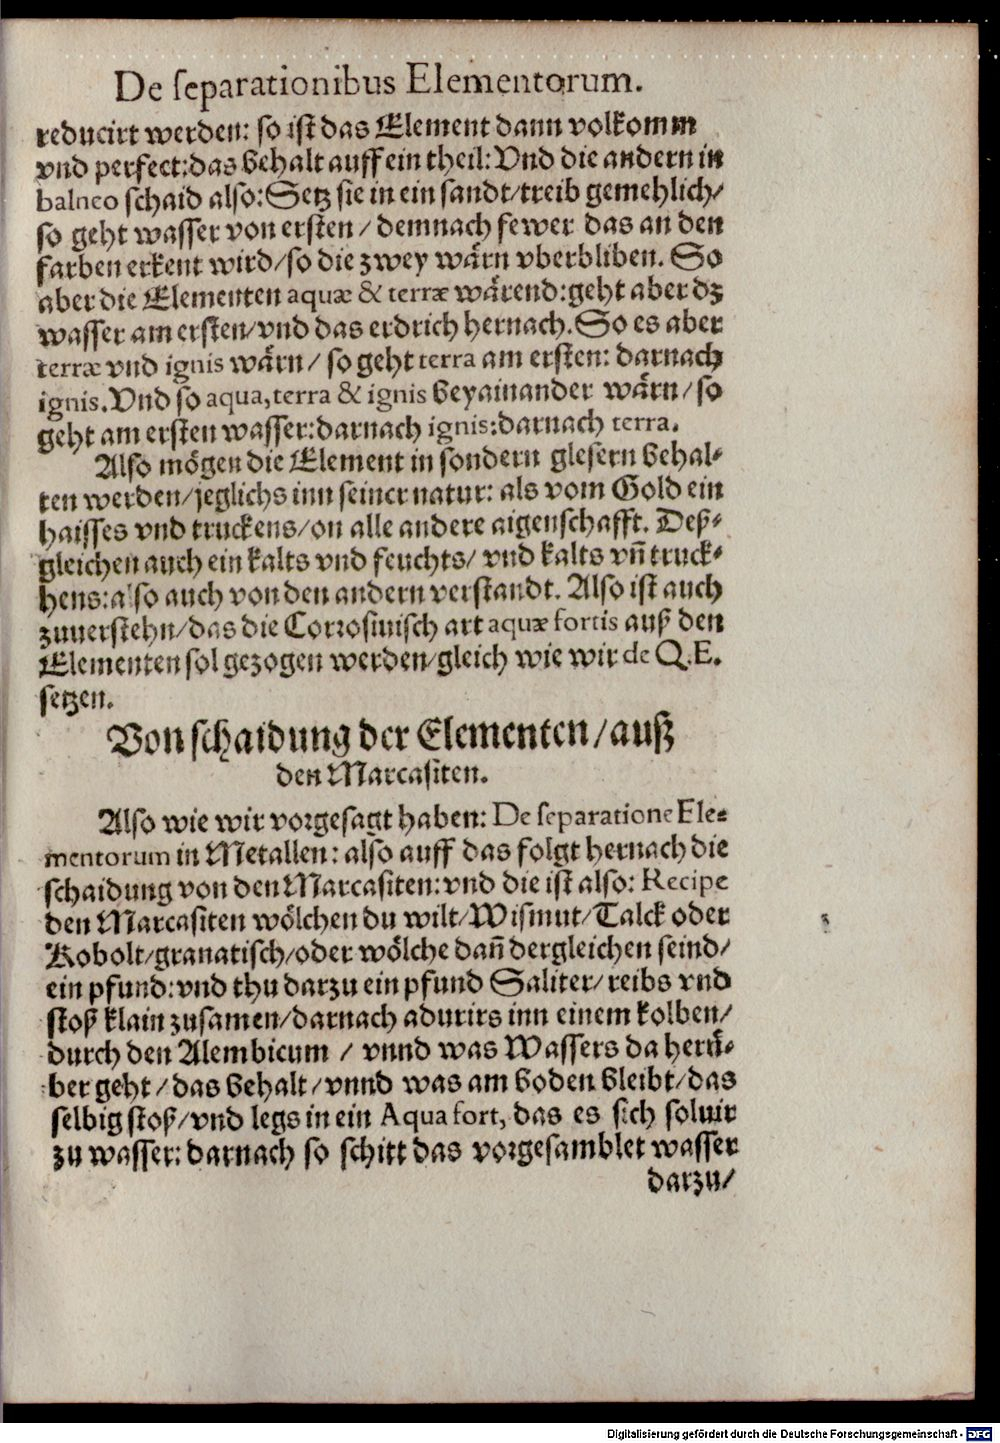 De separationibus Elementorum.
reducirt werden: so ist das Element dann volkomm
vnd perfect: das behalt auff ein theil: Vnd die andern in
balneo schaid also: Setz sie in ein sandt/ treib gemehlich/
so geht wasser von ersten / demnach fewer das an den
farben erkent wird/ so die zwey wärn vberbliben. So
aber die Elementen aquæ & terræ wärend: geht aber dz
wasser am ersten/ vnd das erdrich hernach. So es aber
terræ vnd ignis wärn / so geht terra am ersten: darnach
ignis. Vnd so aqua, terra & ignis beyainander wärn / so
geht am ersten wasser: darnach ignis: darnach terra.
Also mögen die Element in sondern glesern behal-
ten werden/ jeglichs inn seiner natur: als vom Gold ein
haisses vnd truckens/ on alle andere aigenschafft. Deß-
gleichen auch ein kalts vnd feuchts/ vnd kalts vñ truck-
hens: also auch von den andern verstandt. Also ist auch
zuuerstehn/ das die Corrosiuisch art aquæ fortis auß den
Elementen sol gezogen werden/ gleich wie wir de Q.E.
setzen.
Von schaidung der Elementen / auß
den Marcasiten.
Also wie wir vorgesagt haben: De separatione Ele-
mentorum in Metallen: also auff das folgt hernach die
schaidung von den Marcasiten: vnd die ist also: Recipe
den Marcasiten wölchen du wilt/ Wismut/ Talck oder
Kobolt/ granatisch/ oder wölche dañ dergleichen seind/
ein pfund: vnd thu darzu ein pfund Saliter/ reibs vnd
stoß klain zusamen/ darnach adurirs inn einem kolben/
durch den Alembicum / vnnd was Wassers da herü-
ber geht / das behalt / vnnd was am boden bleibt/ das
selbig stoß/ vnd legs in ein Aqua fort, das es sich soluir
zu wasser: darnach so schitt das vorgesamblet wasser
darzu/
Digitalisierung gefördert durch die Deutsche Forschungsgemeinschaft - DFG